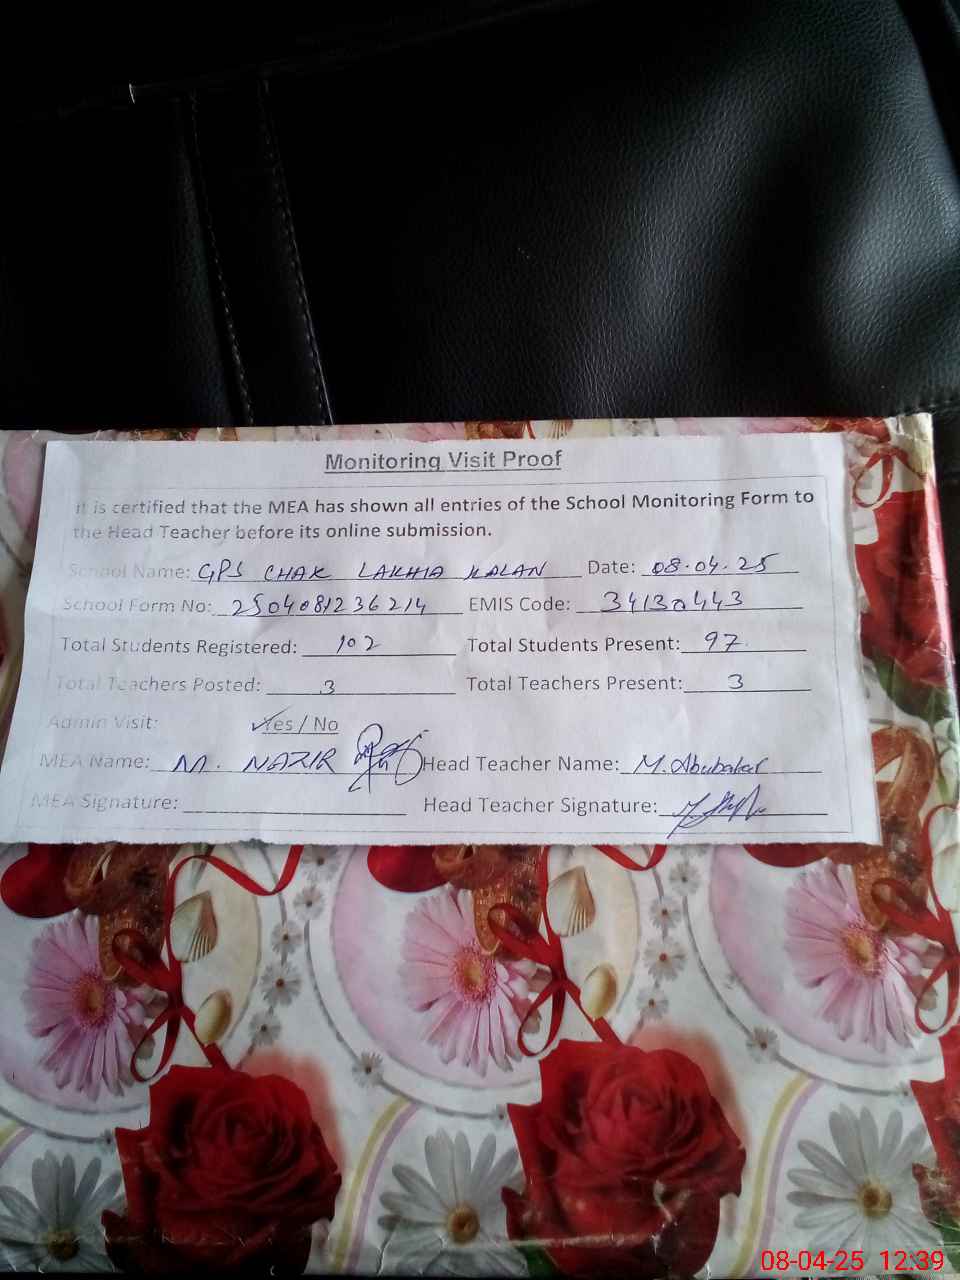 Monitoring Visit Proof
It is certified that the MEA has shown all entries of the School Monitoring Form to
the Head Teacher before its online submission.
School Name: GPS CHAK LAKHIA KALAN Date: 08.04.25
School Form No: 2504081236214 EMIS Code: 34130443
Total Students Registered: 102 Total Students Present: 97
Total Teachers Posted: 3 Total Teachers Present: 3
Admin Visit: Yes / No
MEA Name: M. NAZIR Head Teacher Name: M. Abubakar
MEA Signature: Head Teacher Signature:
08-04-25 12:39